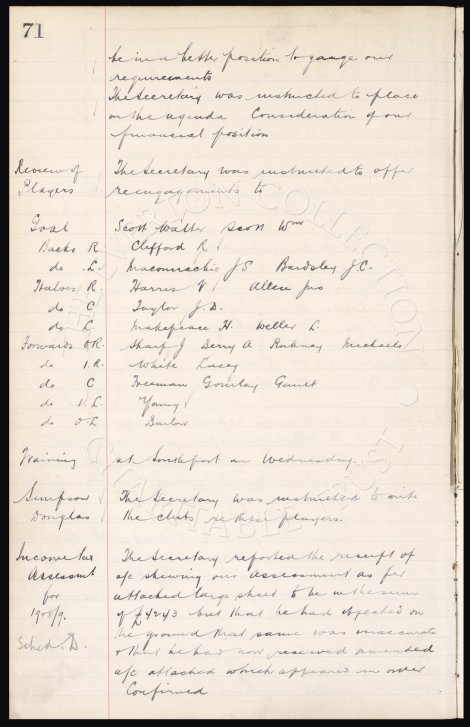 71
be in a better position to gauge our
requirements
The Secretary was instructed to place
on the agenda Consideration of our
financial position
Review of Players The Secretary was instructed to offer
reengagements to
Goal Scott Walter Scott Wm
Backs R. Clifford R
do L. Maconnachie J.S. Bardsley J.C.
Halves R. Harris V. Allan Jas
do C Taylor J.D.
do L Makepeace H. Weller L.
Forwards O.R. Sharp J Berry A Michaels
do I.R. White Lacey
do C Freeman Gourlay Gault
do I.L. Young
do O.L Barlow
Training at Southport on Wednesday.
Simpson The Secretary was instructed to write
Douglas the clubs re these players.
Income tax The Secretary reported the receipt of
Assessment a/c shewing our assessment as per
for attached large sheet to be in the sum
1908/9. of £4243 but that he had objected on
Sched. D. the ground that same was inaccurate
& that he had now received amended
a/c attached which appeared in order
Confirmed
THE EVERTON COLLECTION CHARITABLE TRUST